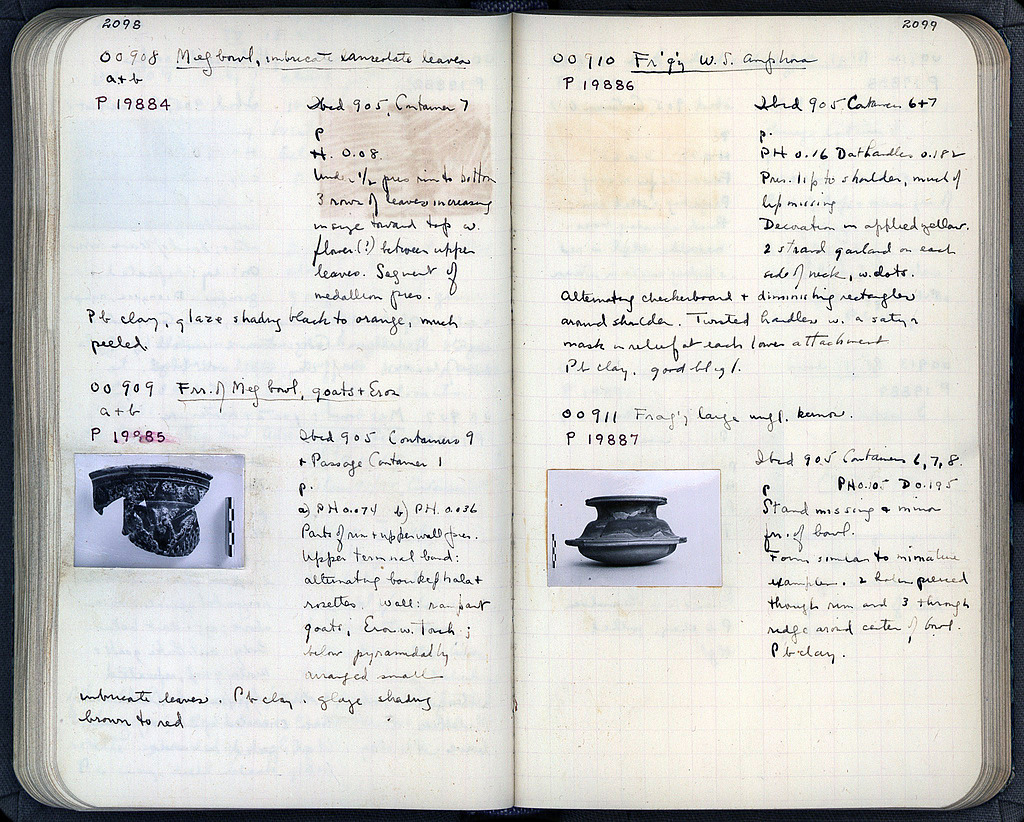 2098
OO 908 Meg bowl, imbricate lanceolate leaves
a+b
P 19884
Ibid 905, Container 7
P
H. 0.08.
Under 1/2 pres rim to bottom
3 rows of leaves increasing
in size toward top w.
flower(?) between upper
leaves. Segment of
medallion pres.
Pb clay, glaze shading black to orange, much
peeled
OO 909 Frr. of Meg bowl, goats + Eros
a+b
P 19885
Ibid 905 Containers 9
+ Passage Container 1
P.
a) PH 0.074 b) PH. 0.036
Parts of rim + upper wall pres.
Upper terminal band:
alternating boukephala +
rosettes. Wall: rampant
goats; Eros w. Torch;
below pyramidally
arranged small
imbricate leaves. Pb clay. glaze shading
brown to red
2099
OO 910 Fr'g'y W. S. Amphora
P 19886
Ibid 905 Containers 6+7
P.
PH 0.16 D at handles 0.182
Pres. lip to shoulder, much of
lip missing
Decoration in applied yellow.
2 strand garland on each
side of neck, w. dots.
Alternating checkerboard + diminishing rectangles
around shoulder. Twisted handles w. a satyr
mask in relief at each lower attachment
Pb clay. good bl gl.
OO 911 Frag'y large ungl. kernos.
P 19887
Ibid 905 Containers 6, 7, 8.
P PH 0.105 D 0.195
Stand missing + minor
frr. of bowl.
Form similar to miniature
examples. 2 holes pierced
through rim and 3 through
ridge around center of bowl.
Pb clay.